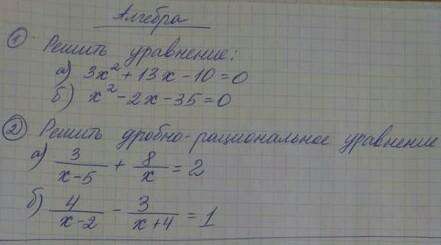 Алгебра
① Решить уравнение:
а) 3x² + 13x - 10 = 0
б) x² - 2x - 35 = 0
② Решить дробно-рациональное уравнение
а) 3/(x-5) + 8/x = 2
б) 4/(x-2) - 3/(x+4) = 1